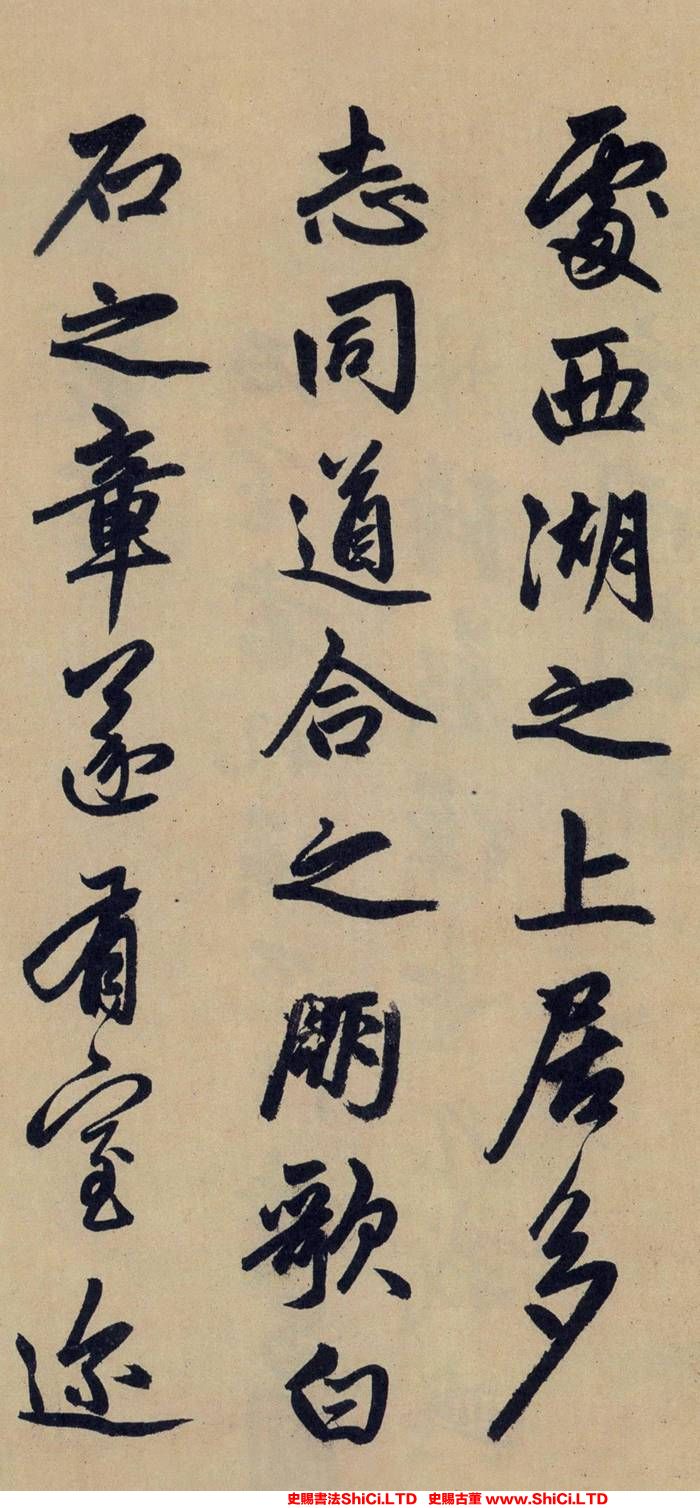 處西湖之上居多
志同道合之朋歌白
石之章遂有室迩
史賜書法ShiCi.LTD 史賜古董 www.ShiCi.LTD